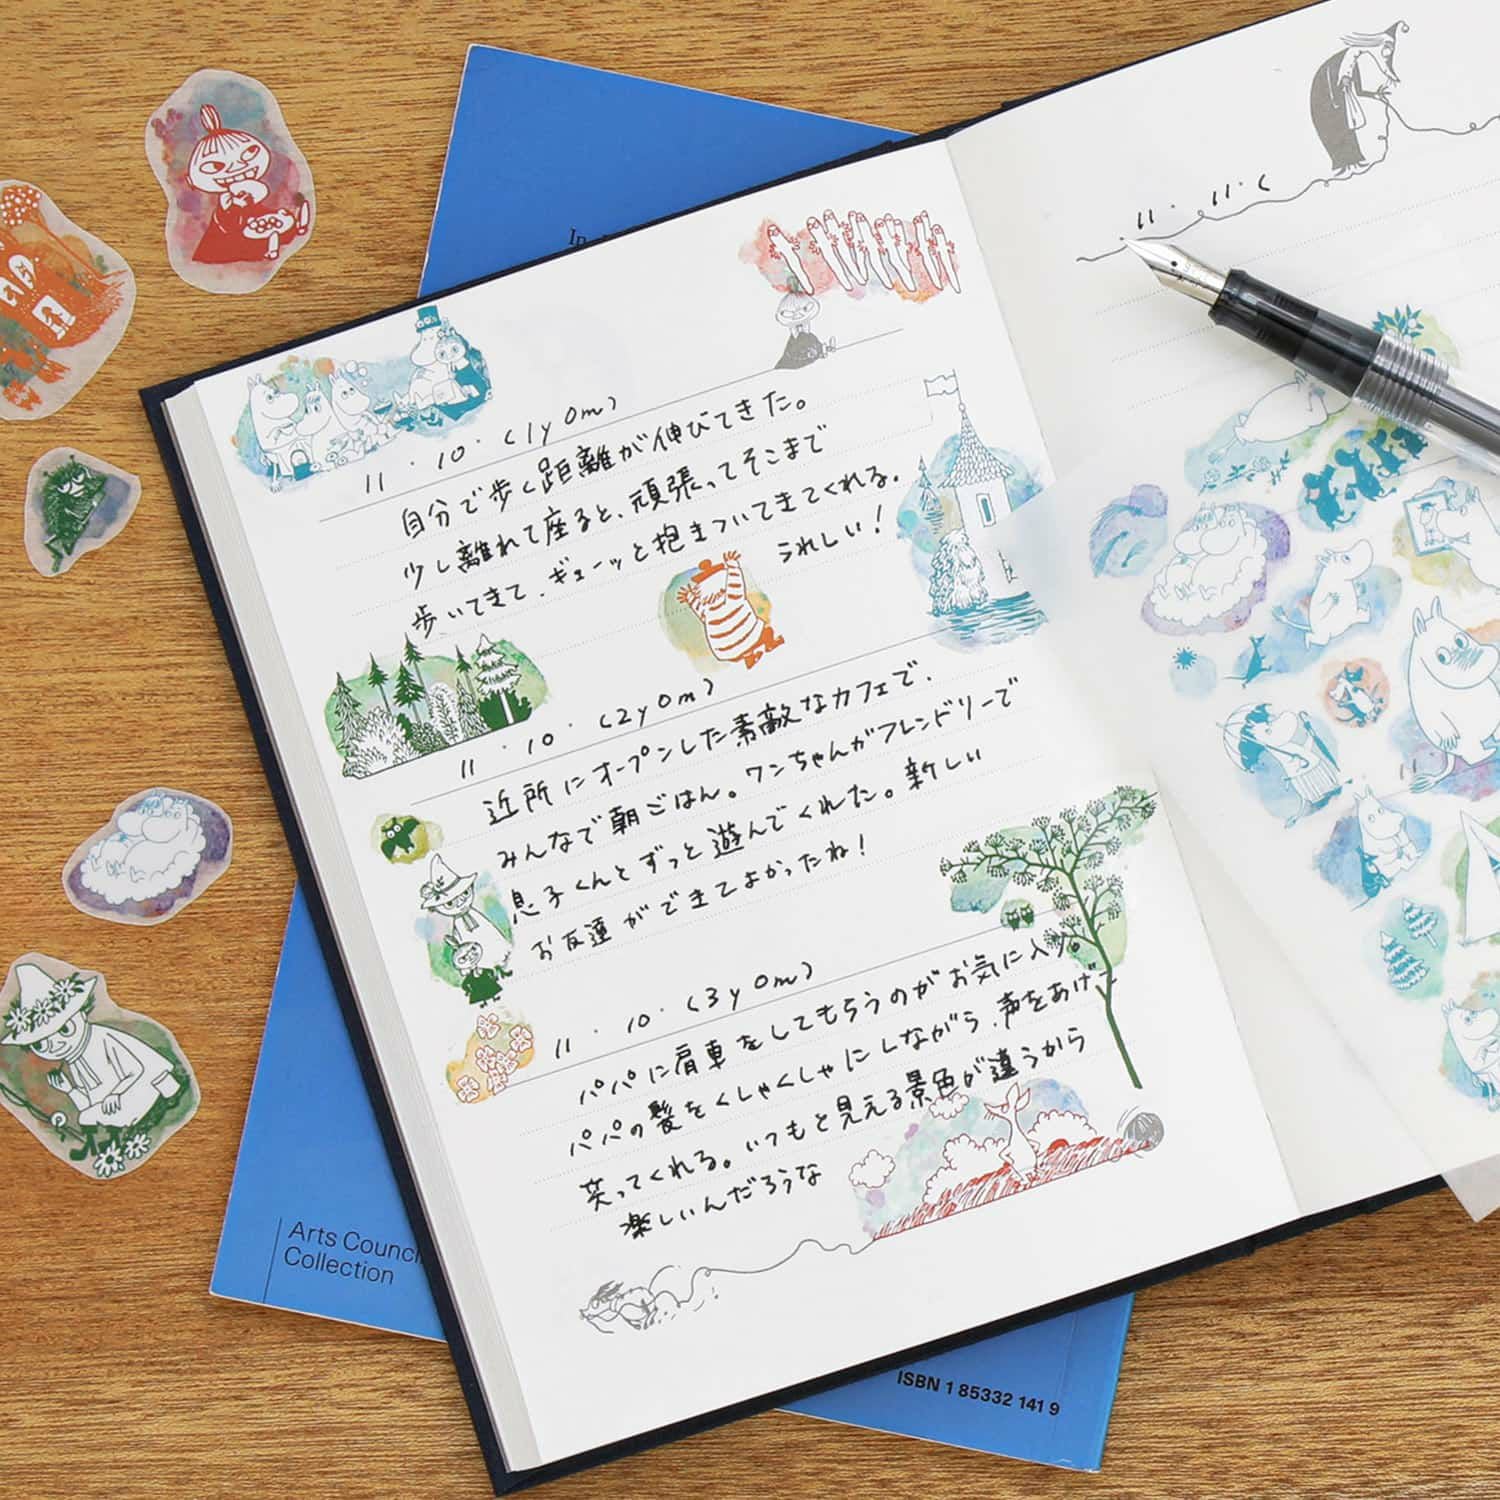 11・10・(1y0m)
自分で歩く距離が伸びてきた。
少し離れて座ると、頑張ってそこまで
歩いてきて、ギューッと抱きついてきてくれる。
うれしい!
11・10・(2y0m)
近所にオープンした素敵なカフェで、
みんなで朝ごはん。ワンちゃんがフレンドリーで
息子くんとずっと遊んでくれた。新しい
お友達ができてよかったね!
11・10・(3y0m)
パパに肩車をしてもらうのがお気に入り。
パパの髪をくしゃくしゃにしながら、声をあげて
笑ってくれる。いつもと見える景色が違うから
楽しいんだろうな
11・11・(
Arts Council
Collection
ISBN 1 85332 141 9